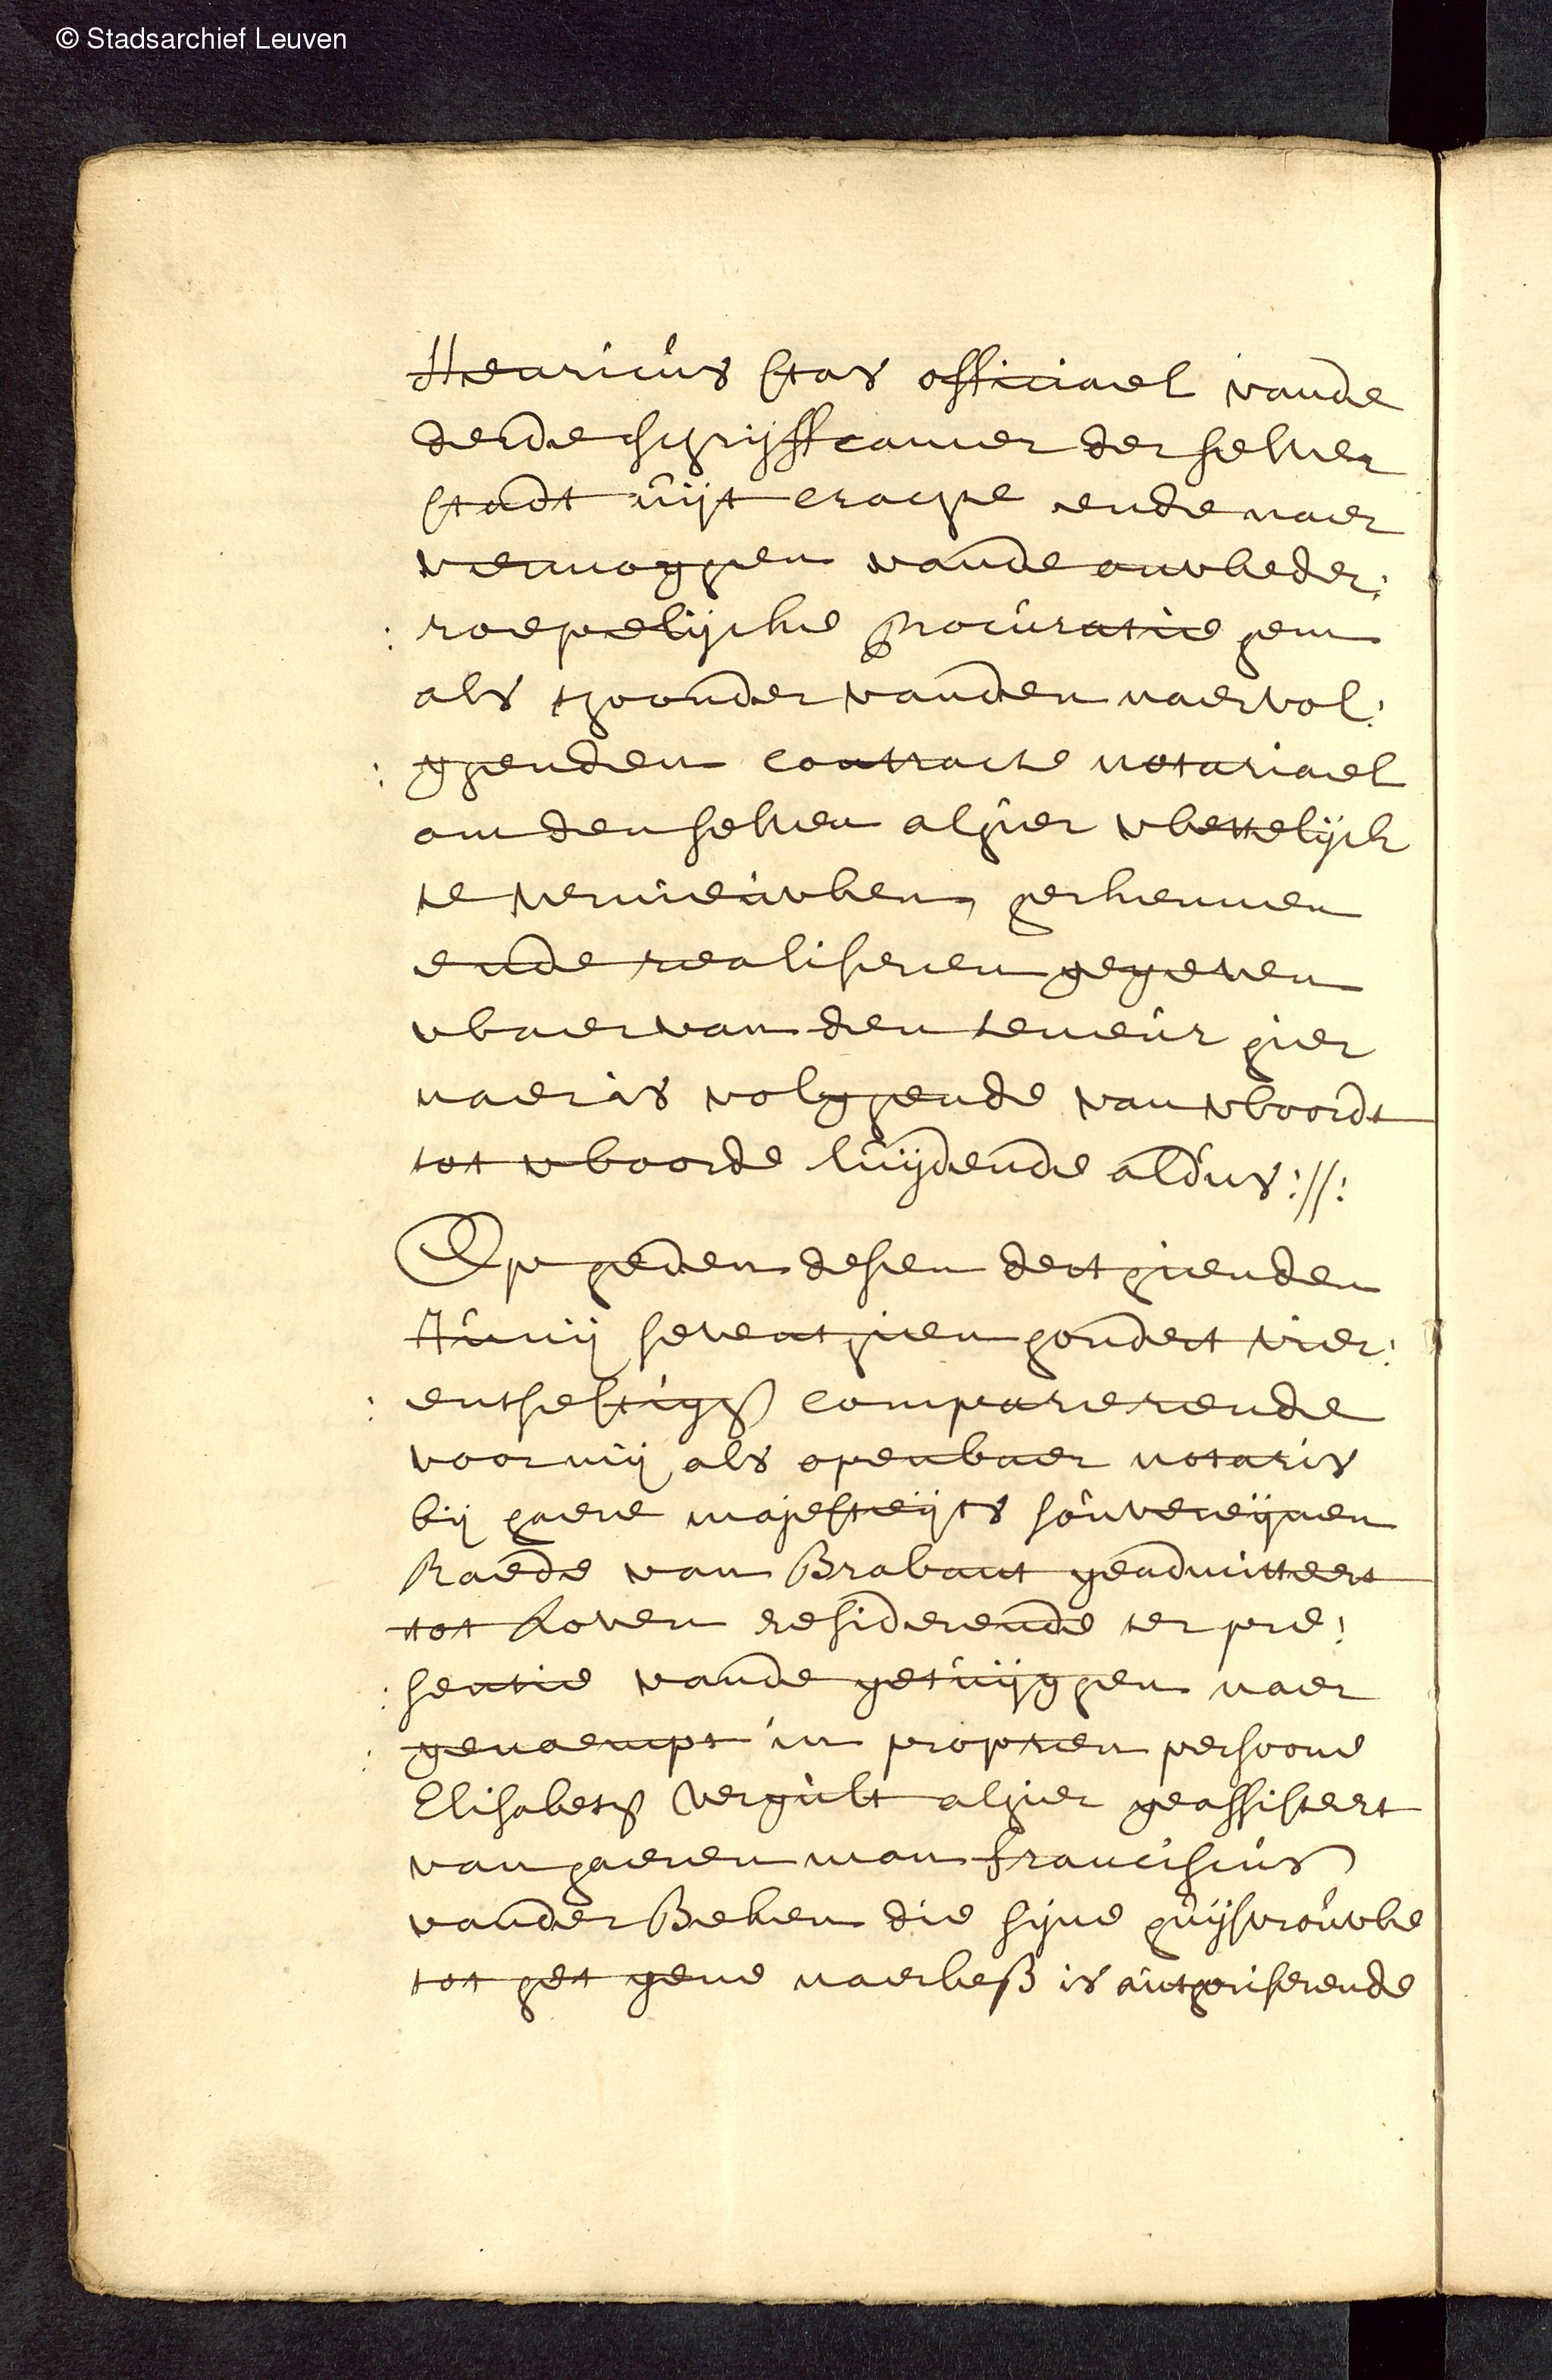 © Stadsarchief Leuven
Henricus Stas officiael vande
derde schrijffcamer der selver
stadt uijt crachte ende naer
vermoghen vande onweder:
: roepelijcke procuratie hem
als thoonder vanden naervol:
: ghenden contracte notariael
om den selven alhier wettelijck
te vernieuwen, herkennen
ende realiseren gegeven
waer van den teneur hier
naer is volghende van woorde
tot woorde luijdende aldus ://:
Op heden desen derthienden
Junij seventhien hondert vier:
: entsestigh comparerende
voor mij als openbaer notaris
bij haere majesteijts souvereijnen
Raede van Brabant geadmitteert
tot Loven residerende ter pre:
: sentie vande getuijghen naer
: genoempt in propren persoone
Elisabeth Vergult alhier geassisteert
van haeren man Franciscus
vander Beken die sijne huijsvrouwe
tot het gene naerbes. is authoriserende